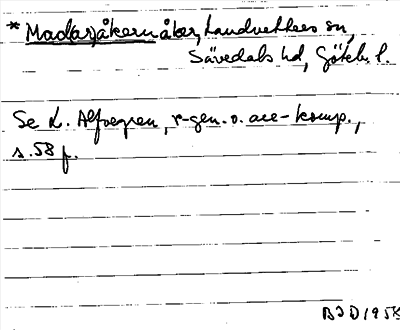 * Mad(ar)åkern åker, Landvetters sn,
Sävedals hd, Göteb. l.
Se L. Alfvegren, r-gen. o. ace-komp.,
s. 58 f.
BJD 1958